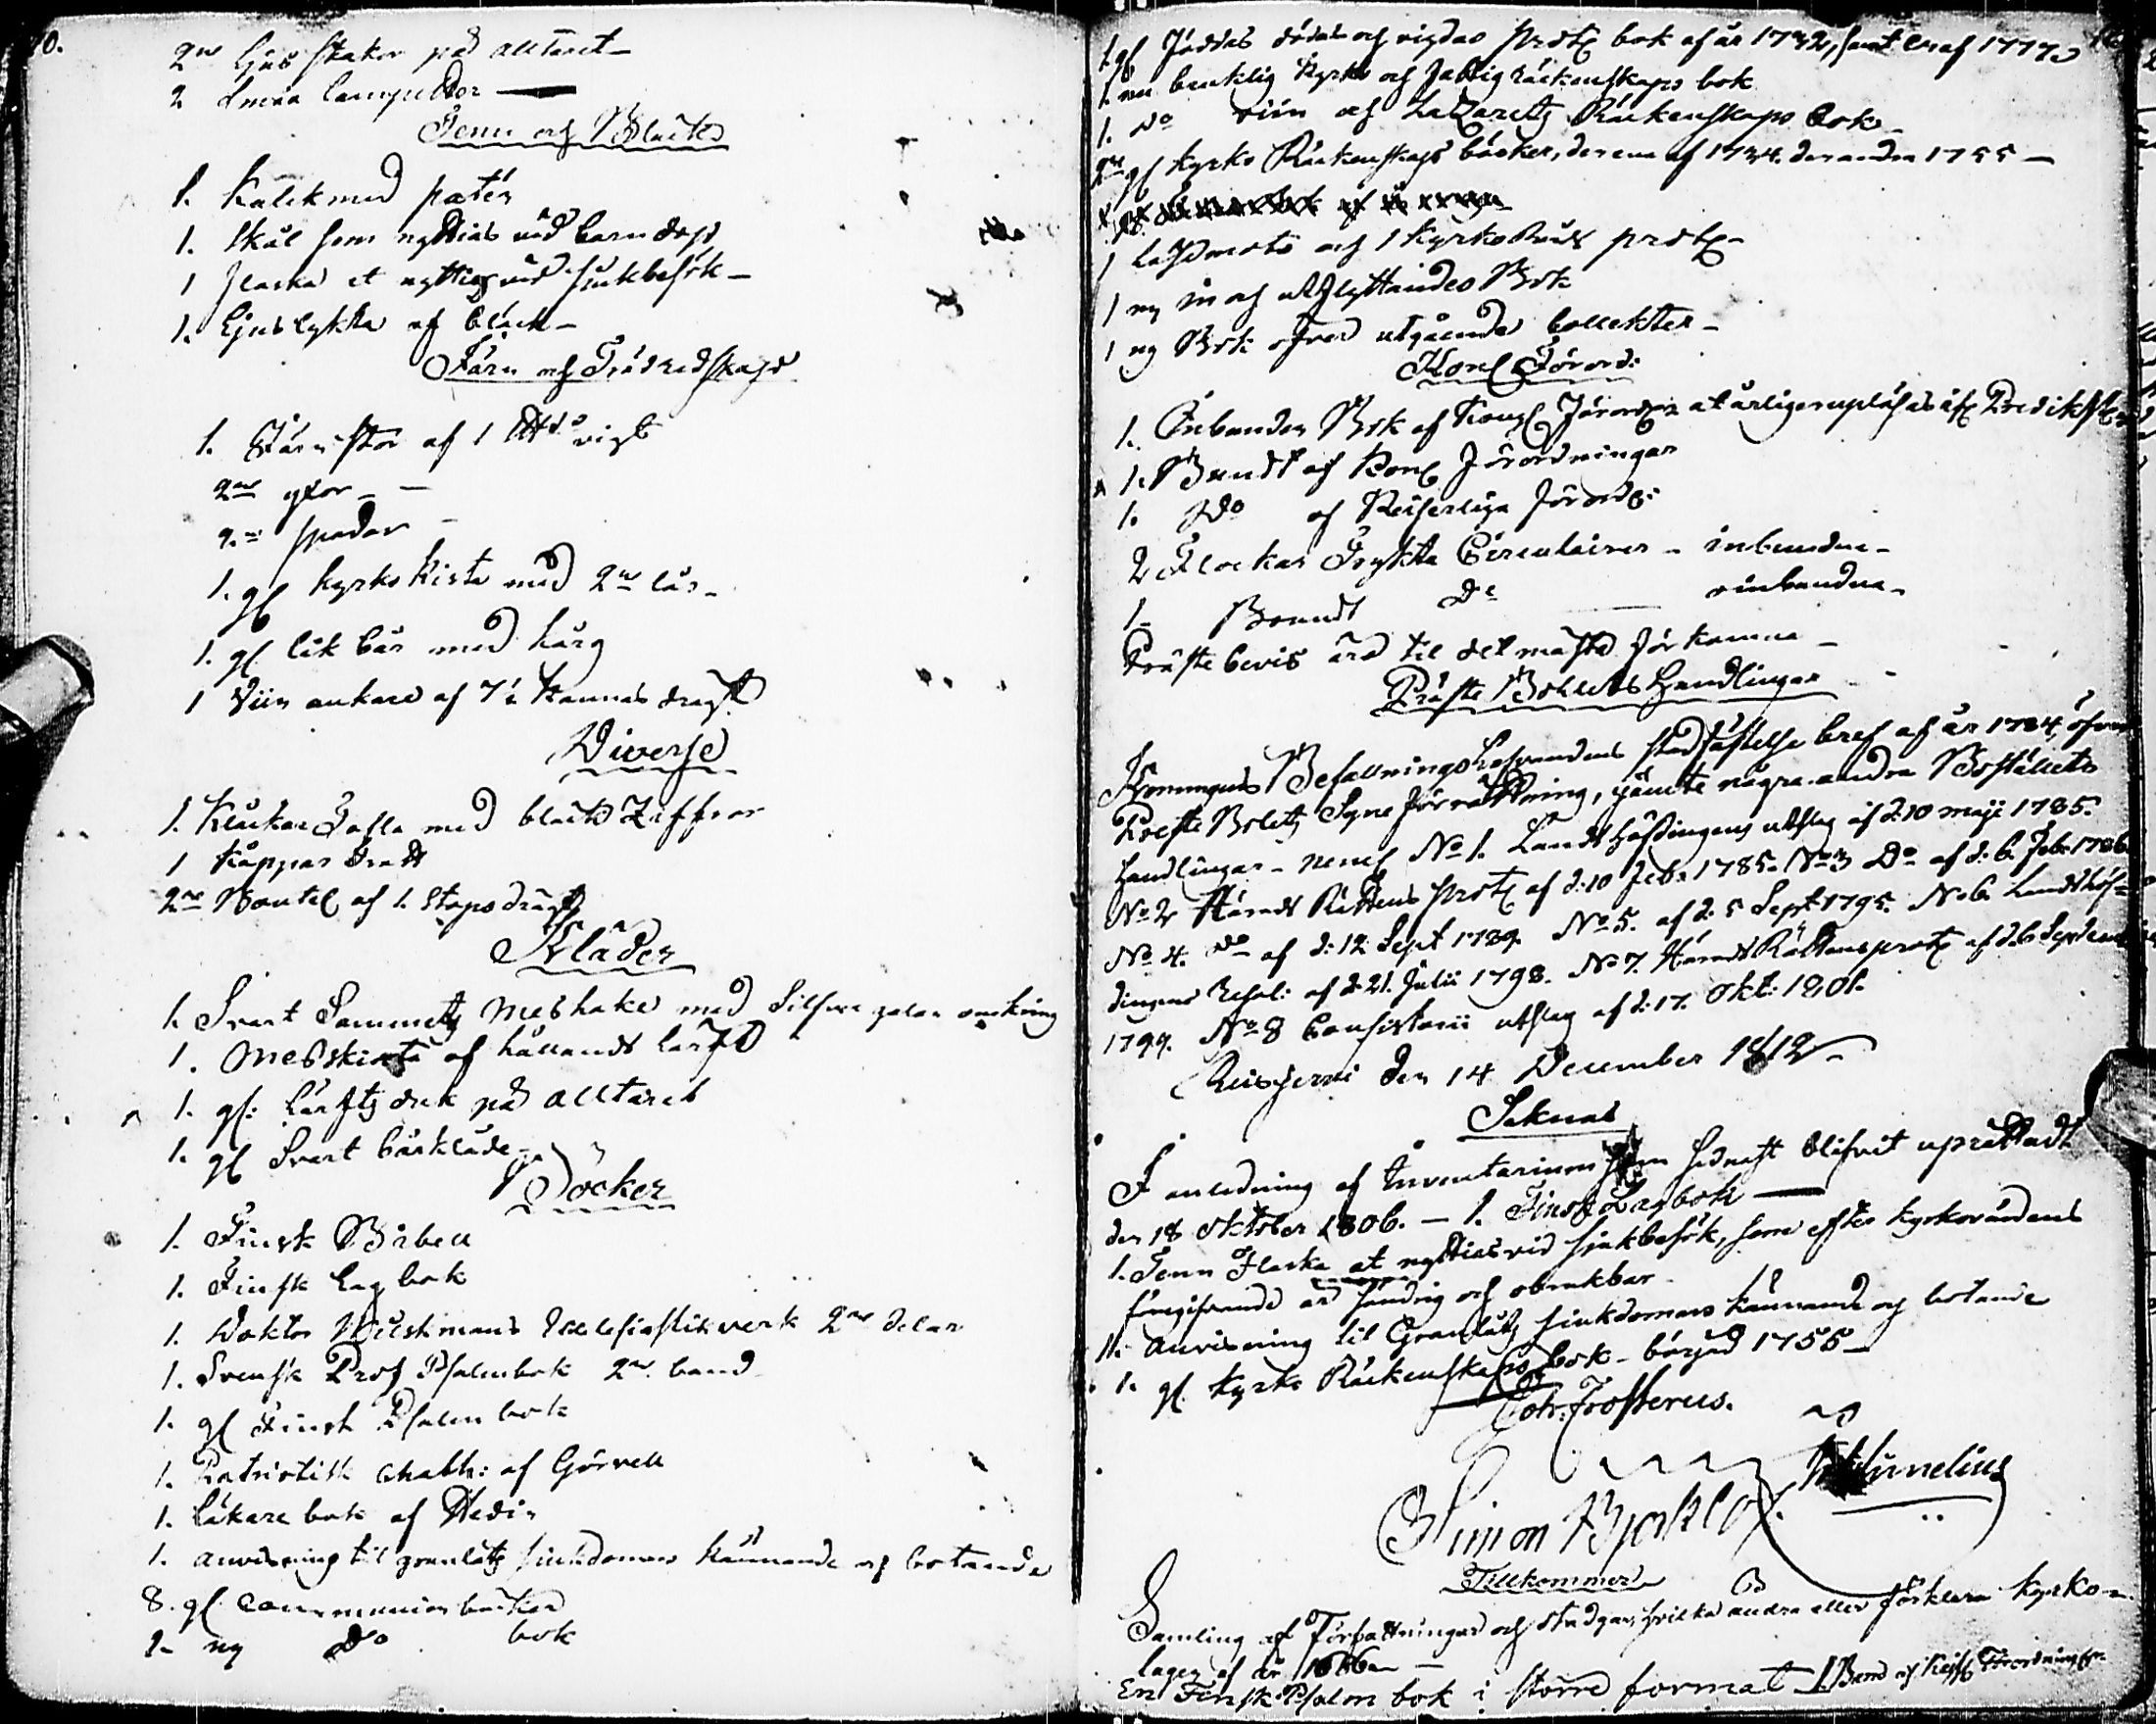 2ne Ljus stakar på alltaret
2 smaa lampetter
Tenn och Bläck
1. Kalck med patén
1. Skål som nyttias vid barn dop
1 flaska at nyttias vid siukbesök
1. Ljuslykta af bläck
Järn och Trädredskap
1. Järnstör af 1 vigt
2ne yxor
2ne spadar
1. gl Kyrko Kista med 2ne lås
1. gl lik bår med
1 Viin ankare af 7½ Kannas
Diverse
1. Kluckar Tafla med bläck Ziffror
1 Kappar Tratt
2ne Boutel af 1. Stops
Kläder
1. Svart Sammets Meshake med Silfver galon omkring
1. Messkiorta af hållands lärft
1. gl: Lärfts duk på alltaret
1. gl Svart bårkläde
Böcker
1. Finsk Bibell
1. Finsk Lag bok
1. Doktor Wilskmans Ecclesiastikverk 2ne delar
1. Svensk Prof Psalmbok 2ne band
1. gl Finsk Psalm bok
1. Patriotisk af Giörvell
1. Läkare bok af Hedin
1. anvisning til granlåts siukdomars kännande och botande
8. gl communion böcker
1 ny Do bok
1. gl föddas dödas och vigdas Prot bok af år 1732, samt en af 1777
1. en bruklig Kyrko och fattig Räckenskaps bok
1. Do viin och Lazarets Räckenskaps bok
2ne gl Kyrko Räckenskaps böcker, den ena af 1734. den andra 1755
1 och 1 Kyrko Råds prot
1 ny in och utflyttandes Bok
1 ny Bok öfver utgående collekter
Kongl Förord:
1. Inbunden Bok af Kongl Förord at årligen upläsas af Predikst
1. Bundt af Kongl Förordningar
1. Do af Keiserliga Förord:
2 Flockar Tryckta Circulairer inbundne
1 Bundt Do oinbundne
Präste bevis äro til det mästa för komna
Präste Bohlets Handlingar
Konungens Befallningshafvandens stadfästelse bref af år 1724, öfver
Preste Bolets Syne förrättning, jämte några andra Boställets
Handlingar - neml No 1. Landshöfdingens utslag af d: 10 maji 1785.
No 2 Härads Rättens Prot af d: 10 Feb: 1785. No 3 Do af d: 6. Feb: 1786
No 4. Do af d: 12 Sept 1789. No 5. af d: 5 Sept 1795. No 6. Landshöf=
dingens Resol: af d 21. Julii 1798. No 7. Härads Rättens prot af d. 6 Septemb
1799. No 8 Consistorii utslag af d: 17. Okt: 1801.
Reisjervi den 14 December 1812
Saknas
I anledning af Inventarium som sednast blifvit uprättadt
den 18 Oktober 1806. - 1. Finsk Lagbok
1. Tenn Flaska at nyttias vid siukbesök, som efter kyrkovärdens
föregifvande är söndrig och obrukbar
1. Anvisning til Granlåts siukdomars kännande och botande
1. gl. Kyrko Räckenskaps bok - börjad 1755
Joh: Frosterus.
Simon Bjorklöf.
Tillkommer
Samling af Författningar och stadgar, hvilka ändra eller förklara Kyrko-
lagen af år 1686
En Finsk Psalm bok i större format 1 Band af Kejs: Förordningar